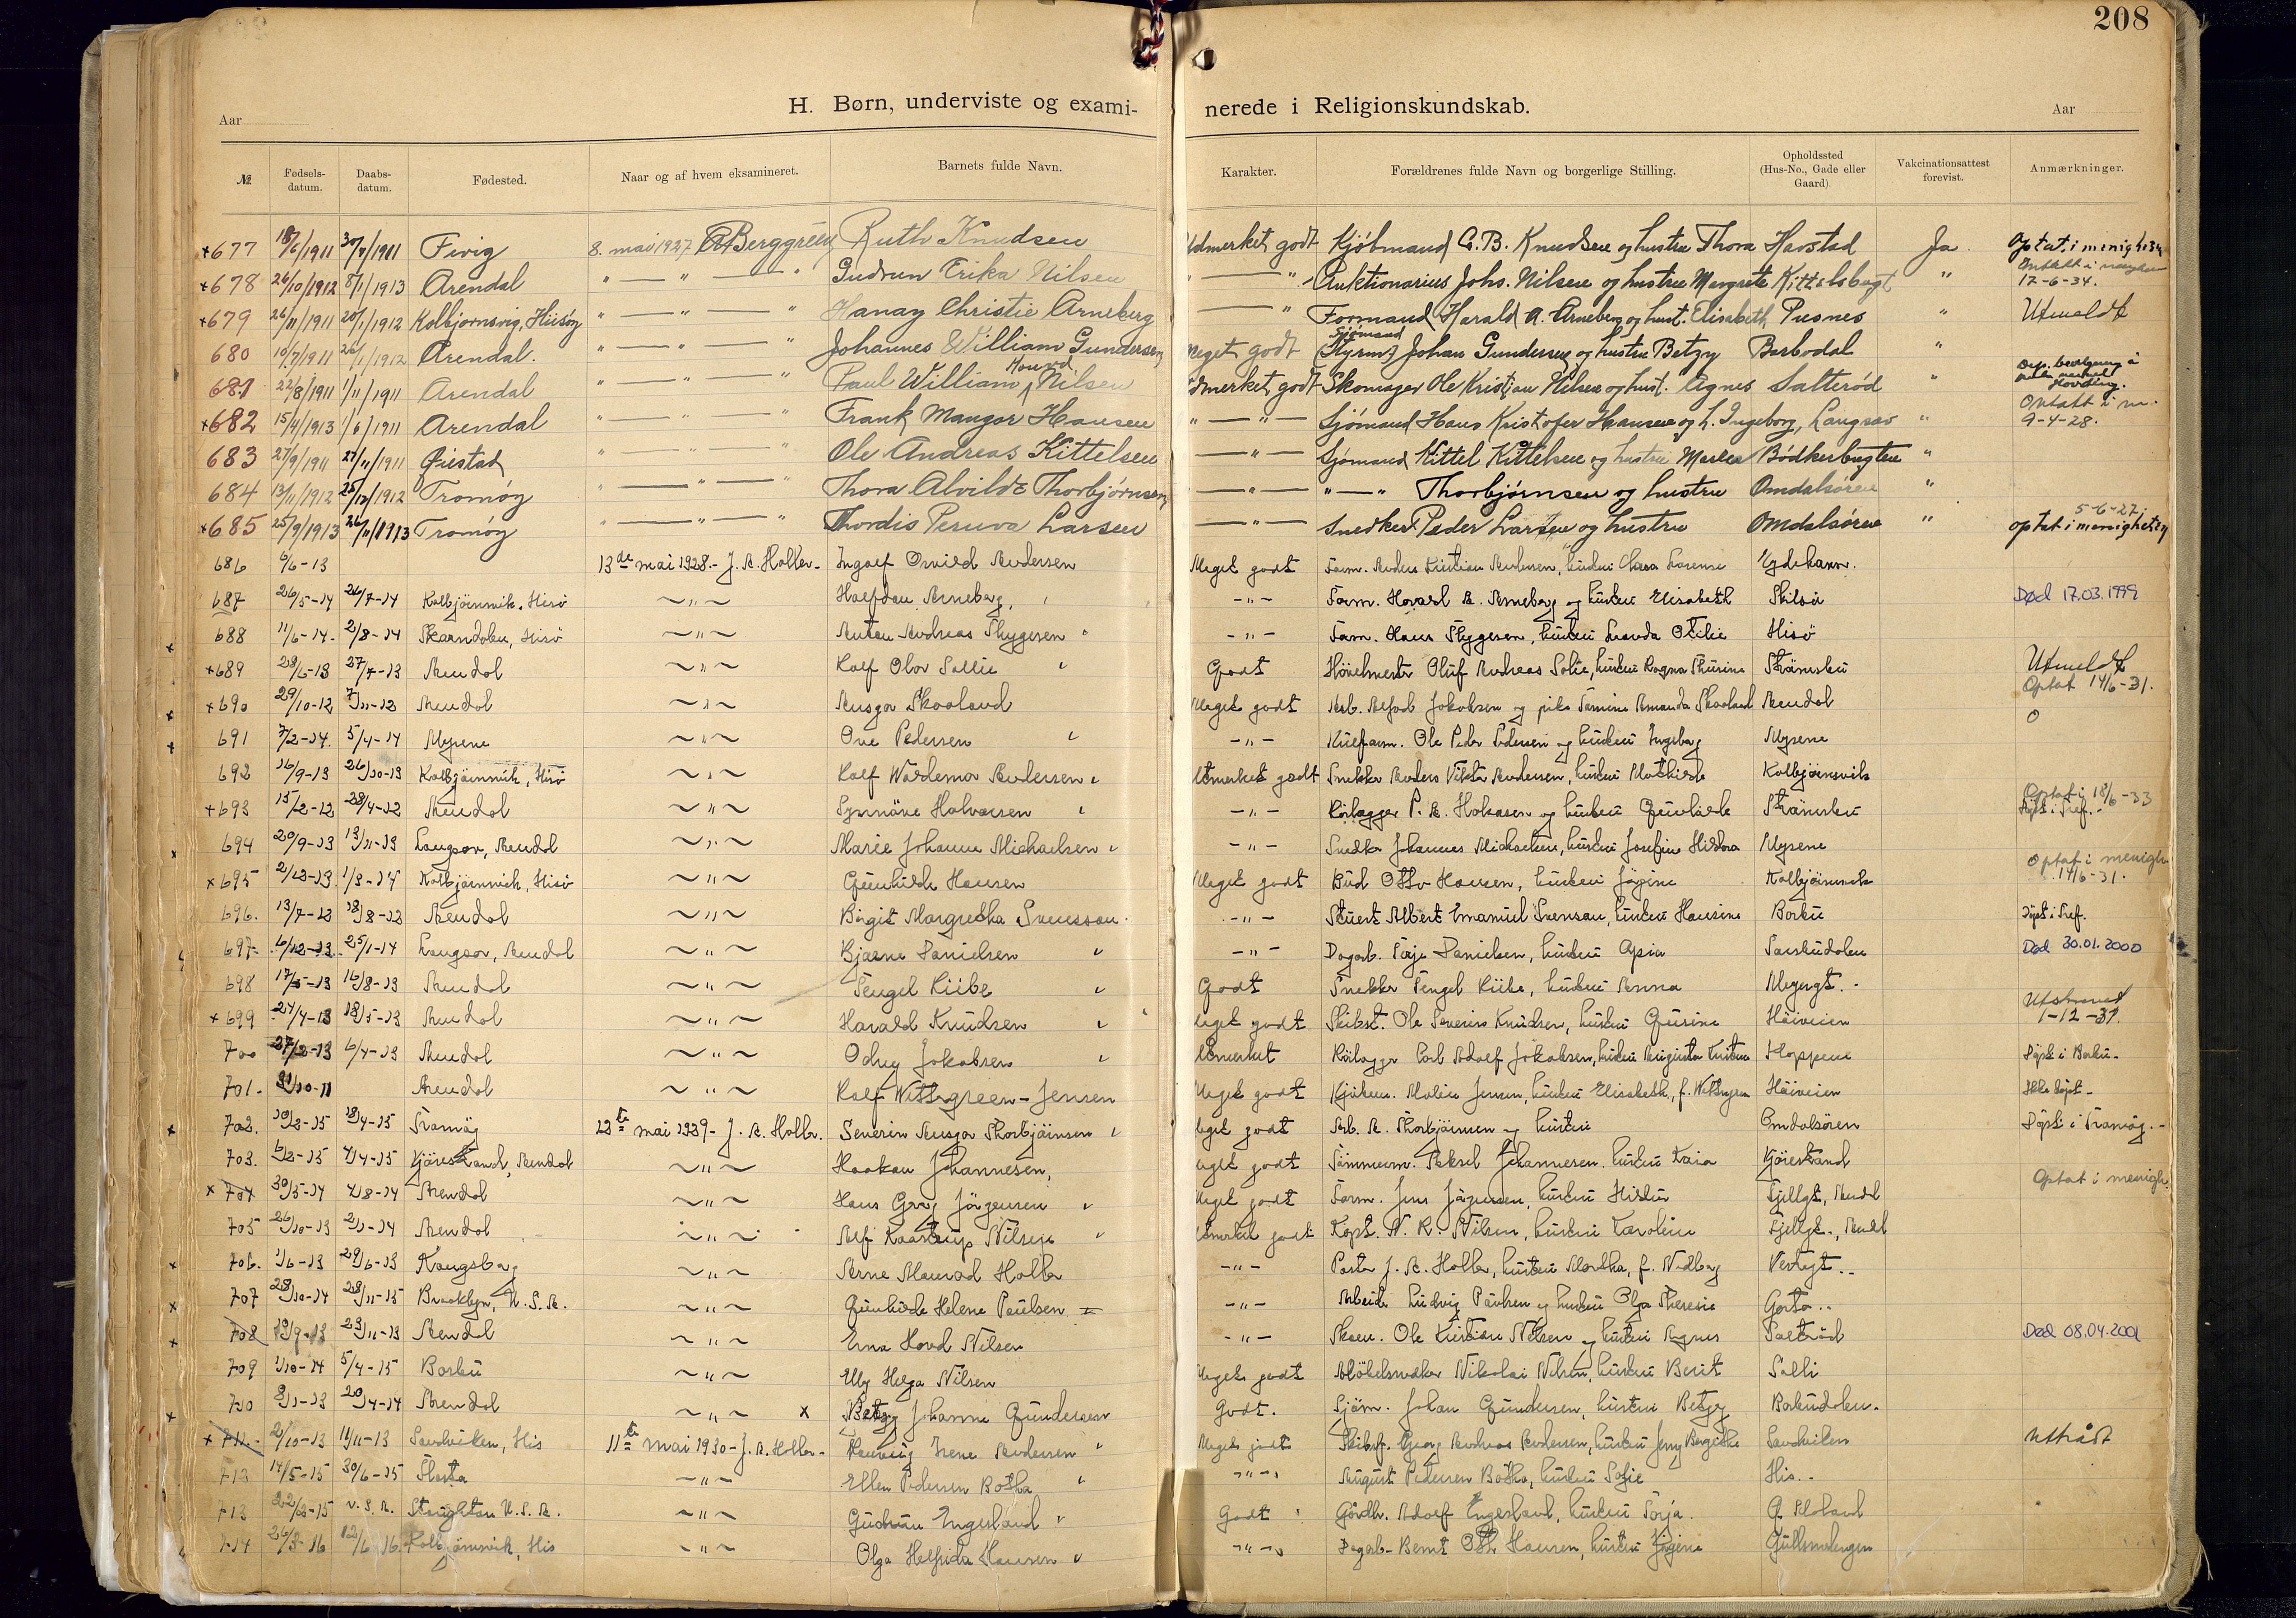 208
H. Børn, underviste og exami- nerede i Religionskundskab.
Aar Aar
№ Fødsels-datum. Daabs-datum. Fødested. Naar og af hvem eksamineret. Barnets fulde Navn. Karakter. Forældrenes fulde Navn og borgerlige Stilling. Opholdssted (Hus-No., Gade eller Gaard). Vakcinationsattest forevist. Anmærkninger.
+677 18/6/1911 30/7/1911 Fevig 8. mai 1927 Berggreen Ruth Knudsen Udmerket godt Kjøbmand C.B. Knudsen og hustru Thora Havstad Ja Optat. i menigheten
+678 26/10/1912 8/1/1913 Arendal " — " — " Gudrun Erika Nilsen " — " Auktionarius Johs. Nilsen og hustru Margrete Kittelsbugt " 17-6-34.
+679 26/11/1911 20/1/1912 Kolbjornsvig, Hisøy " — " — " Hanay Christie Arneberg — " Formand Harald A. Arneberg og hust. Elisabeth Pusnes " Utmeldt
680 10/7/1911 26/1/1912 Arendal. " — " — " Johannes William Gundersen Meget godt Sjømand (Styrm.) Johan Gundersen og hustru Betzy Barbodal "
681 22/8/1911 1/11/1911 Arendal " — " — " Paul William Howard Nilsen Udmerket godt Skomager Ole Kristian Nilsen og hust. Agnes Salterød "
+682 15/4/1913 1/6/1911 Arendal " — " — " Frank Mangor Hansen " — " — Sjømand Hans Kristofer Hansen og h. Ingeborg, Langsæv " Optatt i m. 9-4-28.
683 27/9/1911 27/11/1911 Øiestad " — " — " Ole Andreas Kittelsen — " — Sjømand Kittel Kittelsen og hustru Maren Bødkerbugten "
684 13/11/1912 25/12/1912 Tromøy " — " — " Thora Alvilde Thorbjørnsen — " — " — " Thorbjørnsen og hustru Omdalsøren "
+685 25/9/1913 26/11/1913 Tromøy " — " — " Thordis Peruva Larsen — " — Snedker Peder Larsen og hustru Omdalsøren " 5-6-27 optat i menigheten
686 6/6-13 13de mai 1928.- J. A. Holler- Ingolf Andersen Meget godt Form. Anders Kristian Andersen, hustru Clara Lorense Nydekaren.
687 26/5-14 26/7-14 Kolbjörnsvik, Hisö ~ " ~ Halfdan Arneberg - " - Form. Harald A. Arneberg og hustru Elisabeth Skilsö Død 17.03.1999
688 11/6-14. 2/8-14 Skarndalen, Hisö ~ " ~ Anton Andreas Thygesen " - " - Form. Hans Thygesen, hustru Otilie Hisö
+689 28/6-13 27/7-13 Arendal ~ " ~ Rolf Olav Sollie " Godt Hövelmester Oluf Andreas Solie, hustru Ragna Thurine Strömsbu Utmeldt
+690 29/10-12 7/11-12 Arendal ~ " ~ Ansgar Skaaland Meget godt Arb. Alfred Jakobsen og pike Tomine Amanda Skaaland Arendal Optat 14/6-31.
691 7/2-14. 5/4-14 Myrene ~ " ~ Ove Pedersen " - " - Kulform. Ole Peder Pedersen og hustru Ingeborg Myrene O
692 16/9-13 26/10-13 Kolbjörnsvik, Hisö ~ " ~ Rolf Waldemar Andersen " Utmerket godt Snekker Anders Viktor Andersen, hustru Mathilde Kolbjörnsvik
+693 15/2-12 28/4-12 Arendal ~ " ~ Synnöve Halvorsen " - " - Rörlægger P. A. Halvorsen og hustru Gunhilde Strömsbu Optat i 18/6-33 Döpt i Tref.-
694 20/9-13 13/11-13 Langsæv, Arendal ~ " ~ Marie Johanne Michaelsen " - " - Snedker Johannes Michaelsen, hustru Josefine Hildora Myrene
+695 2/12-13. 1/3-14 Kolbjörnsvik, Hisö ~ " ~ Gunhilde Hansen Meget godt Bud Otto Hansen, hustru Jörgine Kolbjörnsvik Optat i menigh. 14/6-31.
696. 13/7-12 18/8-12 Arendal ~ " ~ Birgit Margretha Svensson - " - Stuert Albert Emanuel Svensson, hustru Hansine Barbu Döpt i Tref.
697- 6/12-13. 25/1-14 Langsæv, Arendal ~ " ~ Bjarne Danielsen " - " - Dagarb. Terje Danielsen, hustru Barbudalen Død 30.01.2000
698 17/5-13 16/8-13 Arendal ~ " ~ Tengel Riibe " Godt Snekker Tengel Riibe, hustru Anna
+699 24/4-13 18/5-13 Arendal ~ " ~ Harald Knudsen " Meget godt Skibst. Ole Severin Knudsen, hustru Gurine Höiveien 1-12-31.
700 27/2-13 6/4-13 Arendal ~ " ~ Odny Jakobsen " Utmerket Rörlægger Carl Adolf Jakobsen, hustru Augusta Kristine Hoppene Döpt i Barbu-
701- 31/10-11 Arendal ~ " ~ Rolf Wittsgreen-Jensen Meget godt Jensen, hustru Elisabeth, f. Höiveien Ikke döpt-
702. 10/2-15 18/4-15 Tromöy 12te mai 1929- J. A. Holler. Severin Ansgar Thorbjörnsen " Meget godt Arb. A. Thorbjörnsen og hustru Omdalsören Döpt i Tromöy.-
703. 6/2-15 4/4-15 Kjörestrand, Arendal ~ " ~ Haakon Johannesen, Meget godt Tömmerm. Johannesen. hustru Kaia Kjörestrand
x 704 30/5-14 4/8-14 Arendal ~ " ~ Hans Georg Jörgensen " Meget godt Form. Jens Jörgensen, hustru Fjellgt, Arendl Optat i menigh.
705 26/10-13 2/1-14 Arendal ~ " ~ Alf Kaastrup Nilsen " Utmerket godt Kapt. N. R. Nilsen, hustru Karoline Fjellgt.,
706. 1/6-13 29/6-13 Kongsberg ~ " ~ Arne Holler - " - Pastor J. A. Holler, hustru Martha, f. Vestregt.
707 28/10-14 28/11-15 Brooklyn, U.S.A. ~ " ~ Gunhilde Helene Paulsen - " - Arbeider Ludvig Paulsen og hustru Olga Theresie
708 19/9-13 23/11-13 Arendal ~ " ~ Erna Nilsen - " - Skom. Ole Kristian Nilsen og hustru Agnes Saltröd Død 08.04.2001
709 1/10-14 5/4-15 Barbu ~ " ~ Elly Helga Nilsen Meget godt Möbelsnedker Nikolai Nilsen, hustru Berit Solli
710 9/1-13 20/4-14 Arendal ~ " ~ x Betzy Johanne Gundersen Godt. Sjöm. Johan Gundersen, hustru Betzy Barbudalen.
+711.- 2/10-13 11/11-13 Sandviken, His 11te mai 1930- J. A. Holler- Irene Andersen " Meget godt Georg Andreas Andersen, hustru Sandviken uttrådt
712 14/5-15 30/6-15 Flosta - " ~ Ellen Pedersen Botha " - " - August Pedersen Botha, hustru Sofie His.-
713 22/2-15 U.S.A. Stoughton U.S.A. ~ " ~ Gudrun Engesland " Godt Adolf Engesland, hustru Torja.
714 26/3-16 12/6-16 Kolbjörnsvik, His - " ~ Olga Helfrida Hansen " - " - Dagarb. Bernt Otto Hansen, hustru Jörgine Gullsmedengen